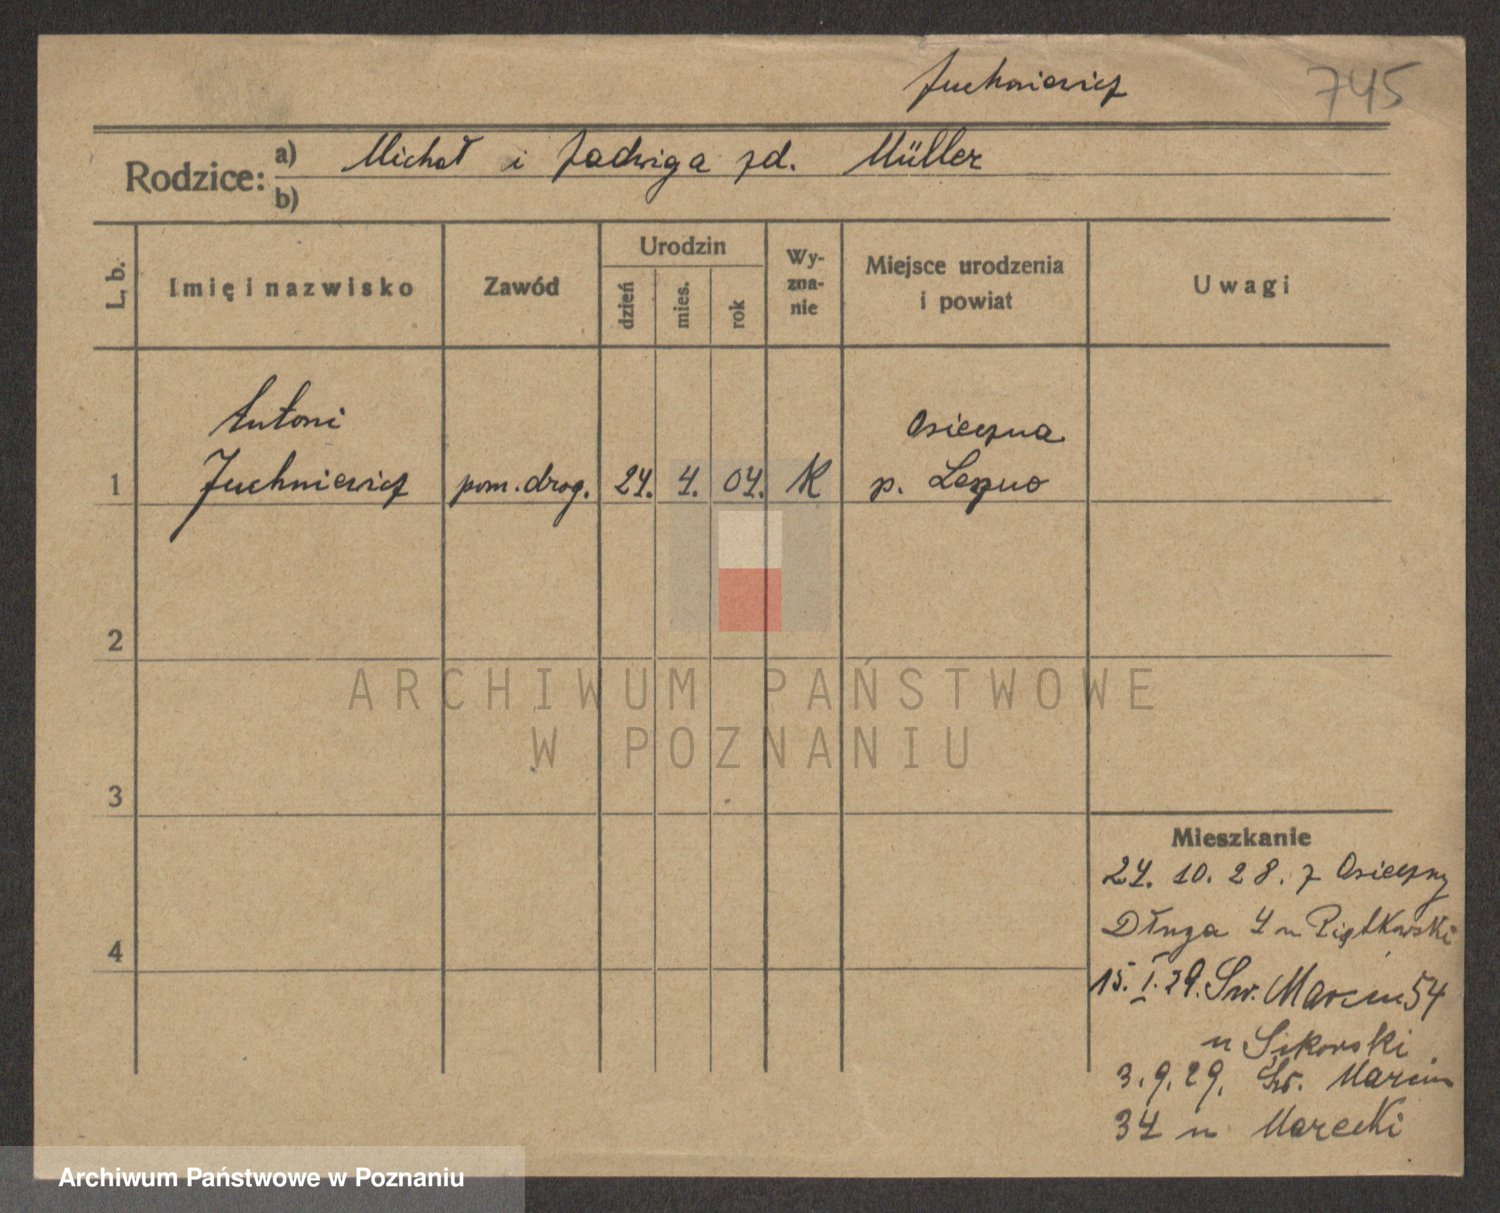 Juchniewicz 745
Rodzice: a) Michał i Jadwiga zd. Müller
b)
L. b.
Imię i nazwisko
Zawód
Urodzin
dzień
mies.
rok
Wy-
zna-
nie
Miejsce urodzenia
i powiat
Uwagi
Antoni
Osieczna
1 Juchniewicz pom. drog. 24. 4. 04. K p. Leszno
2
3
4
Mieszkanie
24. 10. 28. z Osieczny
Długa 4 u Piątkowski
15. I. 29. Św. Marcin 54
u Sikorski
3. 9. 29. Św. Marcin
34 u Marecki
ARCHIWUM PAŃSTWOWE
W POZNANIU
Archiwum Państwowe w Poznaniu